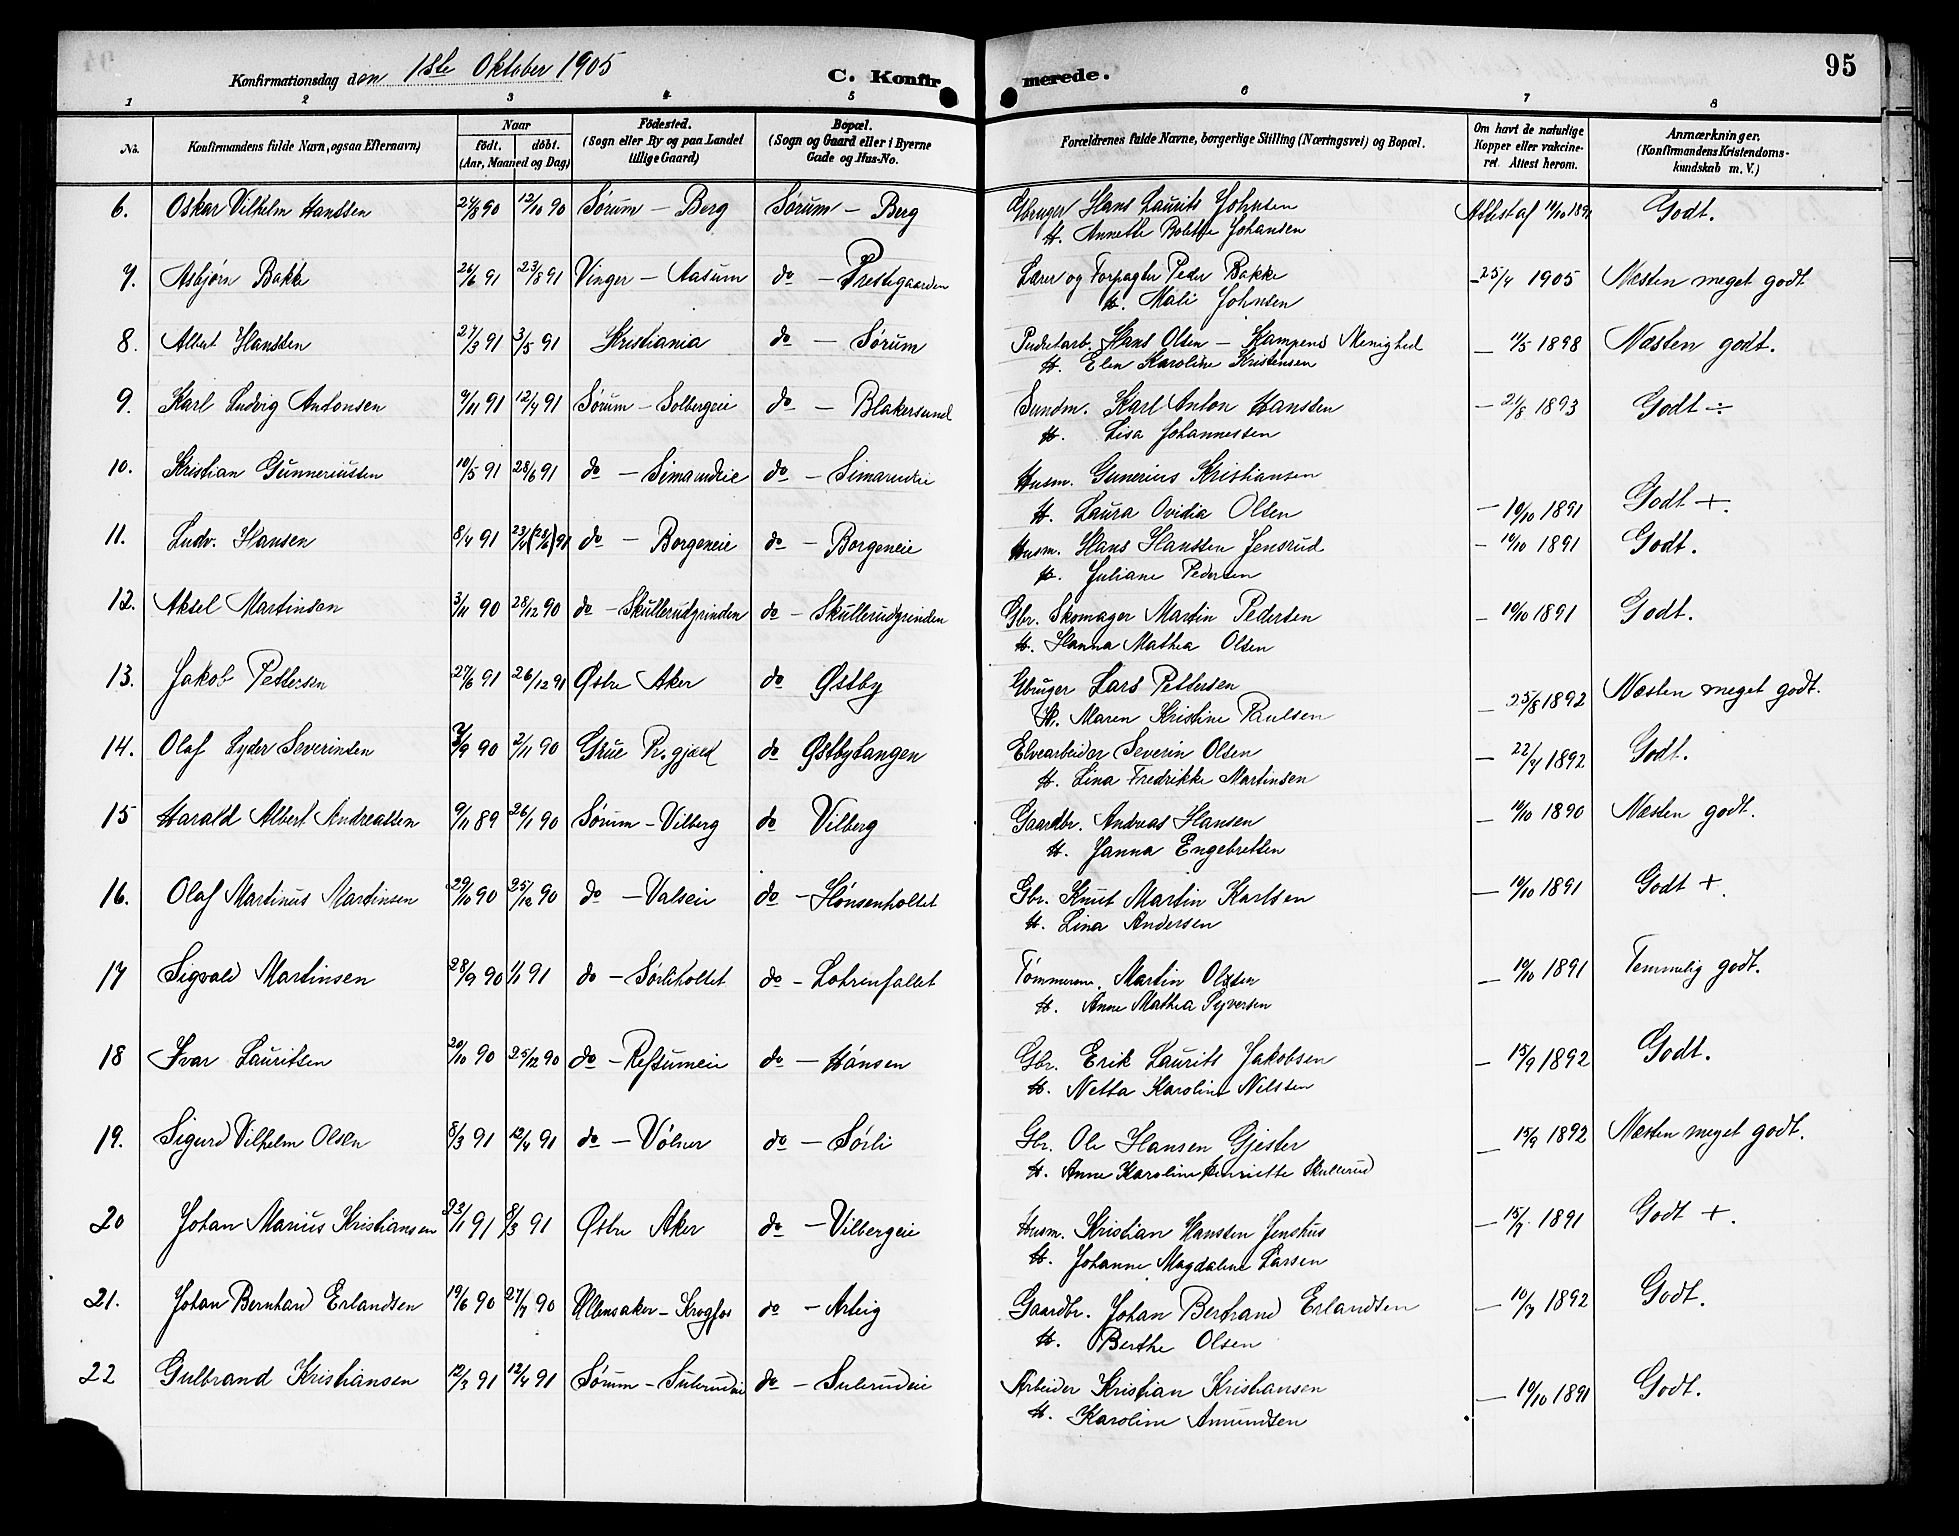 Konfirmationsdag den 1ste Oktober 1905 C. Konfirmerede. 95
1 2 3 4 5 6 7 8
No. Konfirmandens fulde Navn, ogsaa Efternavn) Naar født. døbt. (Aar, Maaned og Dag) Födested. (Sogn eller By og paa Landet tillige Gaard) Bopæl. (Sogn og Gaard eller i Byerne Gade og Hus-No. Forældrenes fulde Navne, borgerlige Stilling (Næringsvei) og Bopæl. Om havt de naturlige Kopper eller vakcineret. Attest herom. Anmærkninger. (Konfirmandens Kristendomskundskab m. V.)
6. Oskar Vilhelm Hanssen 24/8 90 12/10 90 Sørum – Berg Sørum – Berg Gbruger Hans Laurits Johnsen Attest af 14/10 1891 Godt.
H. Annette Bolette Johansen
7. Asbjørn Bakke 26/6 91 23/8 91 Vinger – Aasum do – Prestegaarden Lærer og Forpagter Peder Bakke – 25/4 1905 Næsten meget godt
H. Mali Johnsen
8. Albert Hanssen 27/3 91 3/5 91 Kristiania do – Sørum Pudretarb. Hans Olsen – Kampens Menighed – 11/5 1898 Næsten godt.
H. Elen Karoline Kristensen
9. Karl Ludvig Antonsen 9/11 91 12/4 91 Sørum – Solbergeie do – Blakersund Sundm. Karl Anton Hanssen – 21/8 1893 Godt ÷
H. Lisa Johannessen
10. Kristian Gunneriussen 10/5 91 28/6 91 do – Simarudeie do – Simarudeie Husm. Gunerius Kristiansen
H. Laura Ovidia Olsen – 10/10 1891 Godt +.
11. Ludv. Hansen 8/4 91 23/4 (28/6) 91 do – Borgeneie do – Borgeneie Husm. Hans Hanssen Jensrud – 10/10 1891 Godt.
H. Juliane Pedersen
12. Aksel Martinsen 3/11 90 28/12 90 do – Skullerudgrinden do – Skullerudgrinden Gbr. Skomager Martin Pedersen – 10/10 1891 Godt.
H. Hanna Mathea Olsen
13. Jakob Pettersen 27/6 91 26/12 91 Østre Aker do Østby Gbruger Lars Pettersen
H. Maren Kristine Paulsen – 25/8 1892 Næsten meget godt.
14. Olaf Lyder Severinsen /9 90 2/11 90 Grue Pr.gjæld do Østbytangen Elvearbeider Severin Olsen – 22/4 1892 Godt.
H. Lina Fredrikke Martinsen
15 Harald Albert Andreassen 9/11 89 26/1 90 Sørum – Vilberg do Vilberg Gaardbr. Andreas Hansen – 10/10 1890 Næsten godt.
H. Janna Engebretsen
16. Olaf Martinus Martinsen 29/10 90 25/12 90 do – Valseie do – Hønsenholtet Gbr. Knut Martin Karlsen – 10/10 1891 Godt +.
H. Lina Andersen
17 Sigvald Martinsen 28/9 90 1/1 91 do – Sørliholtet do – Lohrenfallet Tømmerm. Martin Olsen – 10/10 1891 Temmelig godt.
H. Anne Mathea Syversen
18 Ivar Lauritsen 20/10 90 25/12 90 do – Refsumeie do – Hønsen Gbr. Erik Laurits Jakobsen – 15/9 1892 Godt.
H. Netta Karoline Nilssen
19. Sigurd Vilhelm Olsen 8/3 91 12/4 91 do – Vølner do – Sørli Gbr. Ole Hansen Gjester – 15/9 1892 Næsten meget godt.
H. Anne Karoline Henriette Skullerud
20 Johan Marius Kristiansen 23/1 91 8/3 91 Østre Aker do – Vilbergeie Husm. Kristian Hanssen Jenshus – 15/9 1891 Godt +.
H. Johanne Magdalene Larsen
21. Johan Bernhard Erlandsen 19/6 90 27/7 90 Ullensaker – Krogfos do – Arteig Gaardbr. Johan Bertrand Erlandsen – 10/7 1892 Godt.
H. Berthe Olsen
22 Gulbrand Kristiansen 12/3 91 12/4 91 Sørum – Sulerudeie do – Sulerudeie Arbeider Kristian Kristiansen – 10/10 1891 Godt.
H. Karoline Amundsen